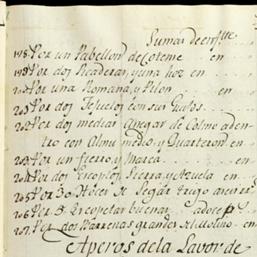 Suma de enfte
198 Por un Pabellon de Coteme en
199 Por dos Picaderas, y una hoz en
Por una Romana, y Pilon en
201 Por dos Tejuelos con sus Guxos
202 Por dos medias Anegas de Colmo aden
tro con Almu medio, y Quarteron en
203 Por un fierro, y Marca en
204 Por dos Escoplos, Sierra, y Azuela en
205 Por 30 Hoces de Segar trigo
206 Por 5 Escopetas buenas
207 Por dos Barrenas grandes de Molino en
Aperos de la Lavor de